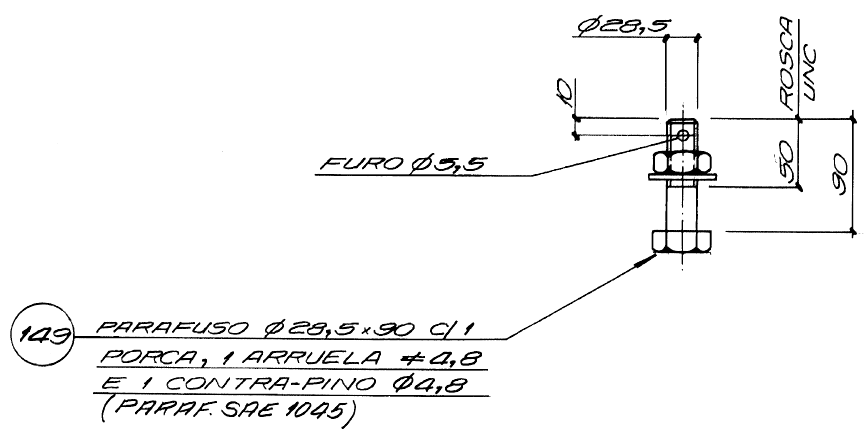 Ø28,5
ROSCA
UNC
10
FURO Ø5,5
50
90
149
PARAFUSO Ø28,5×90 C/1
PORCA, 1 ARRUELA ≠4,8
E 1 CONTRA-PINO Ø4,8
(PARAF. SAE 1045)